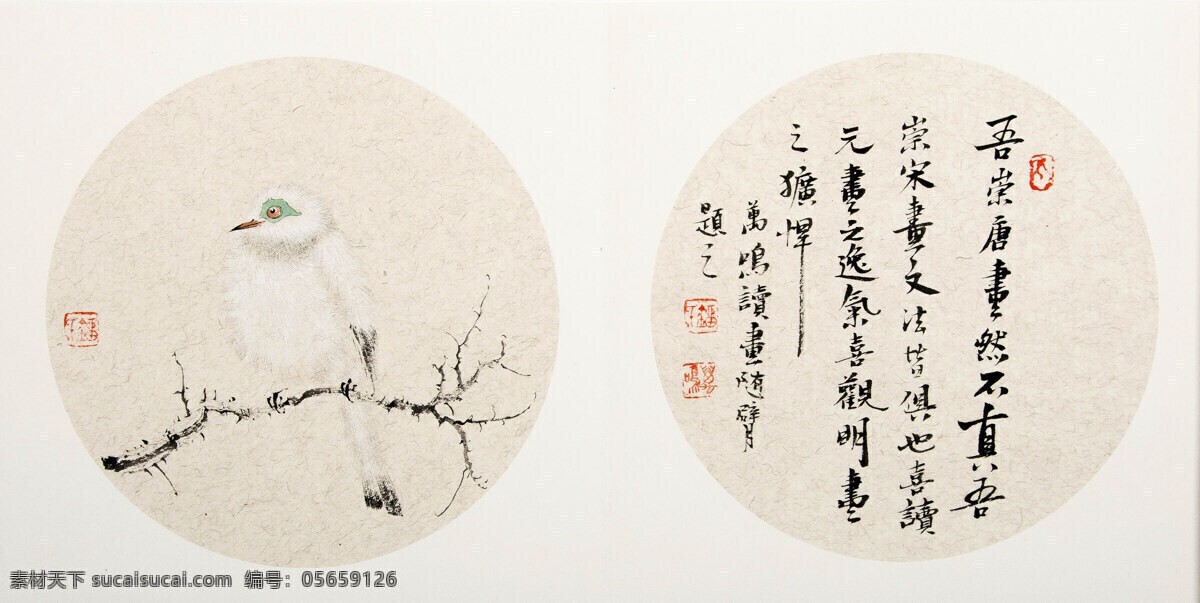 吾崇唐畫然不真吾
崇宋畫文法皆俱也喜讀
元畫之逸氣喜觀明畫
之獷悍
萬鳴讀畫随臂
題之
素材天下 sucaisucai.com 编号：05659126